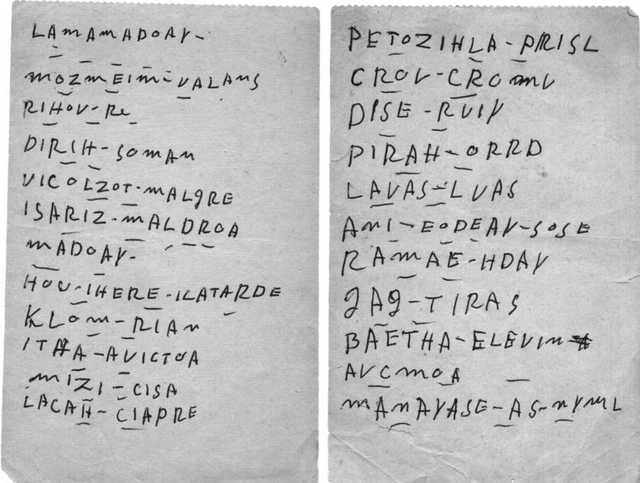 LAMAMADOAY-
MOZMEIM-VALANS
RIHOV-Re
DIRIH-SOMAN
VICOLZOT-MALGRE
ISARIZ-MALDROA
MADOAY-
HOV-IHERE-ILATARDE
KLOM-RIAN
ITHA-AVICTOA
MIZI-CISA
LACAH-CIAPRE
PETOZIHLA-PRISL
CROV-CROMV
DISE-RVIY
PIRAH-ORRD
LAVAS-LVAS
AMI-EODEAY-SOSE
RAMAE-HDAY
JAG-TIRAS
BAETHA-ELEVIM
AVCMOA
MANAYASE-AS-NYML